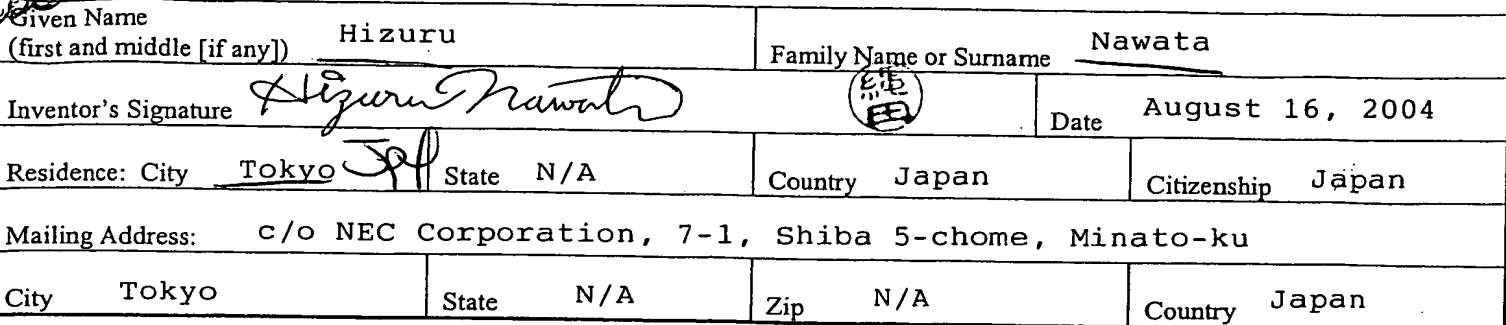 Given Name
(first and middle [if any]) Hizuru Family Name or Surname Nawata
Inventor's Signature Hizuru Nawata 縄田 Date August 16, 2004
Residence: City Tokyo State N/A Country Japan Citizenship Japan
Mailing Address: c/o NEC Corporation, 7-1, Shiba 5-chome, Minato-ku
City Tokyo State N/A Zip N/A Country Japan